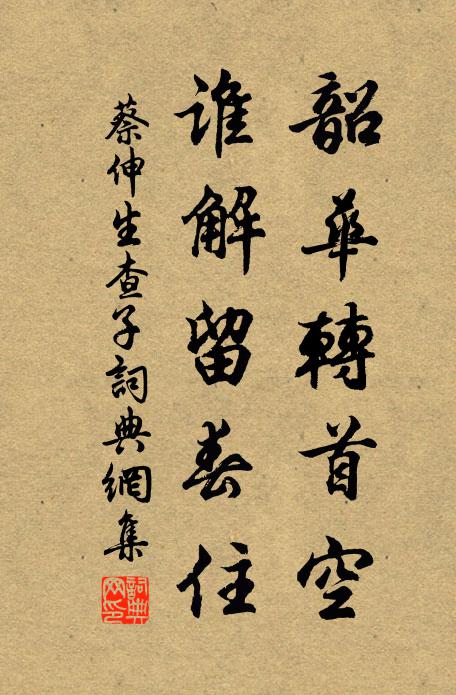 韶華轉首空
誰解留春住
蔡伸生查子詞典網集
詞典网印